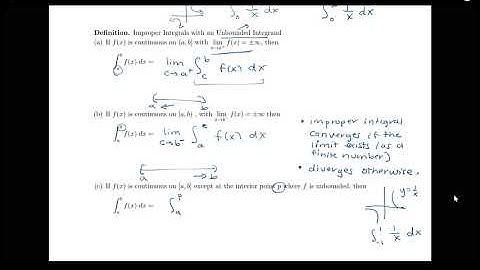 ∫₀ 1/x dx
Definition. Improper Integrals with an Unbounded Integrand
(a) If f(x) is continuous on (a, b] with lim x→a⁺ f(x) = ±∞, then
∫ₐᵇ f(x) dx = lim c→a⁺ ∫_c^b f(x) dx
a b
(b) If f(x) is continuous on [a, b) , with lim x→b⁻ f(x) = ±∞ then
∫ₐᵇ f(x) dx = lim c→b⁻ ∫ₐᶜ f(x) dx
a b
• improper integral
converges if the
limit exists (as a
finite number)
• diverges otherwise.
(c) If f(x) is continuous on [a, b] except at the interior point p where f is unbounded, then
∫ₐᵇ f(x) dx = ∫ₐᵖ
y=1/x
∫₋₁¹ 1/x dx